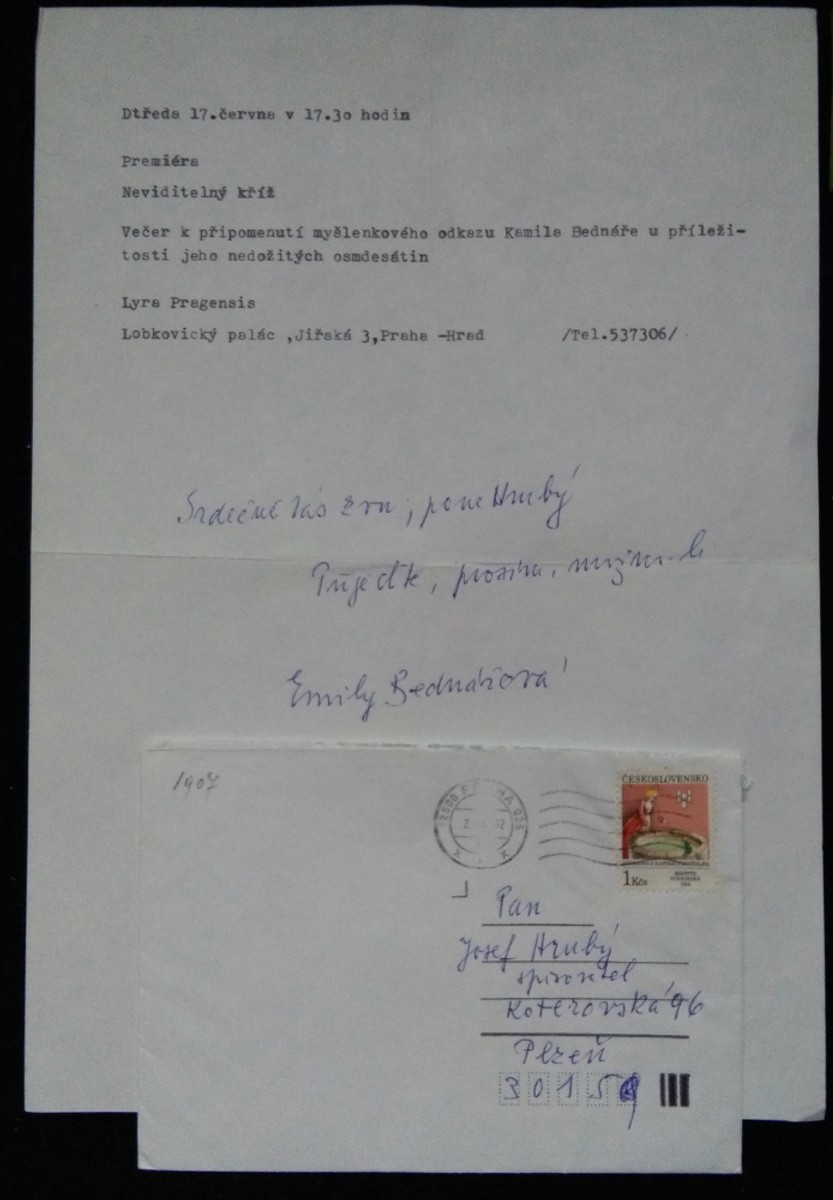 Dtředa 17.června v 17.3o hodin
Premiéra
Neviditelný kříž
Večer k připomenutí myšlenkového odkazu Kamila Bednáře u příleži-
tosti jeho nedožitých osmdesátin
Lyra Pragensis
Lobkovický palác ,Jiřská 3,Praha -Hrad /Tel.537306/
Srdečně Vás zvu, pane Hrubý
Přijeďte, prosím, možno-li
Emily Bednářová
1907
ČESKOSLOVENSKO
1 Kčs
Pan
Josef Hrubý
spisovatel
Koterovská 96
Plzeň
3015